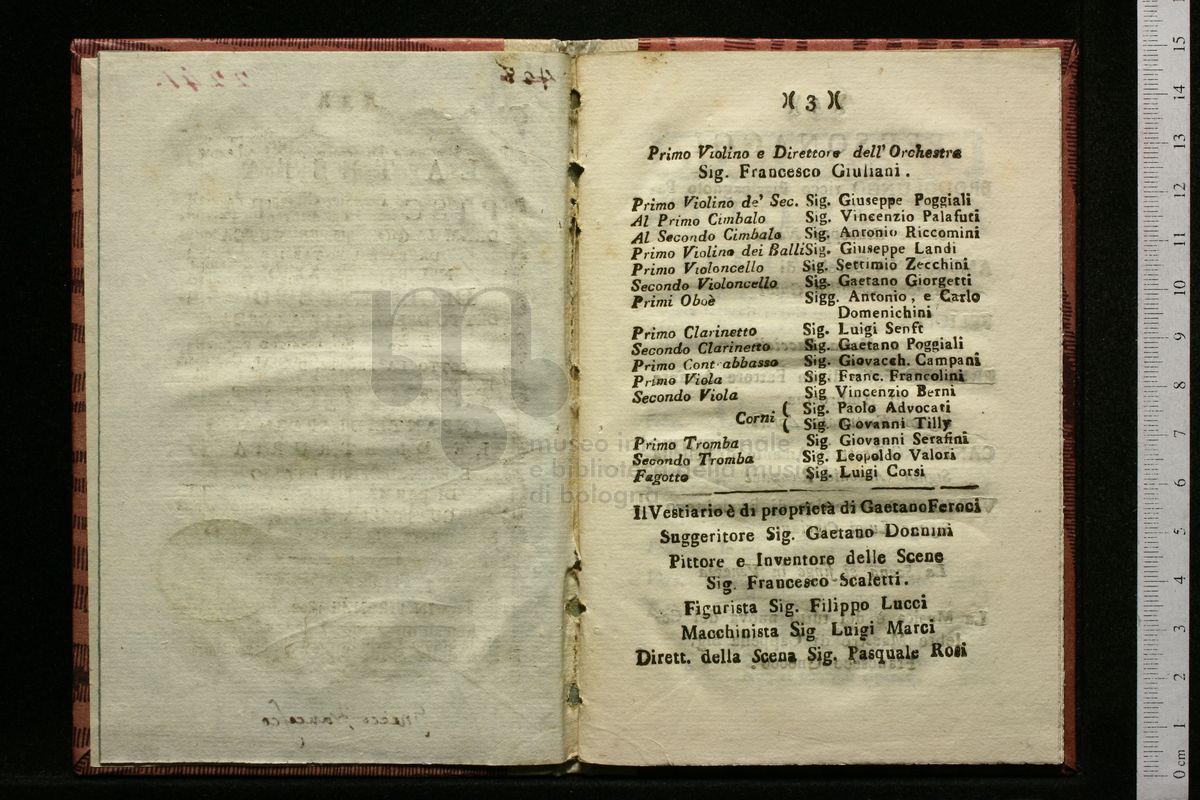 )( 3 )(
Primo Violino e Direttore dell' Orchestra
Sig. Francesco Giuliani.
Primo Violino de' Sec. Sig. Giuseppe Poggiali
Al Primo Cimbalo Sig. Vincenzio Palafuti
Al Secondo Cimbalo Sig. Antonio Riccomini
Primo Violino dei Balli Sig. Giuseppe Landi
Primo Violoncello Sig. Settimio Zecchini
Secondo Violoncello Sig. Gaetano Giorgetti
Primi Oboè Sigg. Antonio, e Carlo
Domenichini
Primo Clarinetto Sig. Luigi Senft
Secondo Clarinetto Sig. Gaetano Poggiali
Primo Contrabbasso Sig. Giovacch. Campani
Primo Viola Sig. Franc. Francolini
Secondo Viola Sig Vincenzio Berni
Corni { Sig. Paolo Advocati
{ Sig. Giovanni Tilly
Primo Tromba Sig Giovanni Serafini
Secondo Tromba Sig. Leopoldo Valori
Fagotto Sig. Luigi Corsi
Il Vestiario è di proprietà di Gaetano Feroci
Suggeritore Sig. Gaetano Donnini
Pittore e Inventore delle Scene
Sig. Francesco Scaletti.
Figurista Sig. Filippo Lucci
Macchinista Sig Luigi Marci
Dirett. della Scena Sig. Pasquale Rosi
museo internazionale
e biblioteca della musica
di bologna
0 cm 1 2 3 4 5 6 7 8 9 10 11 12 13 14 15